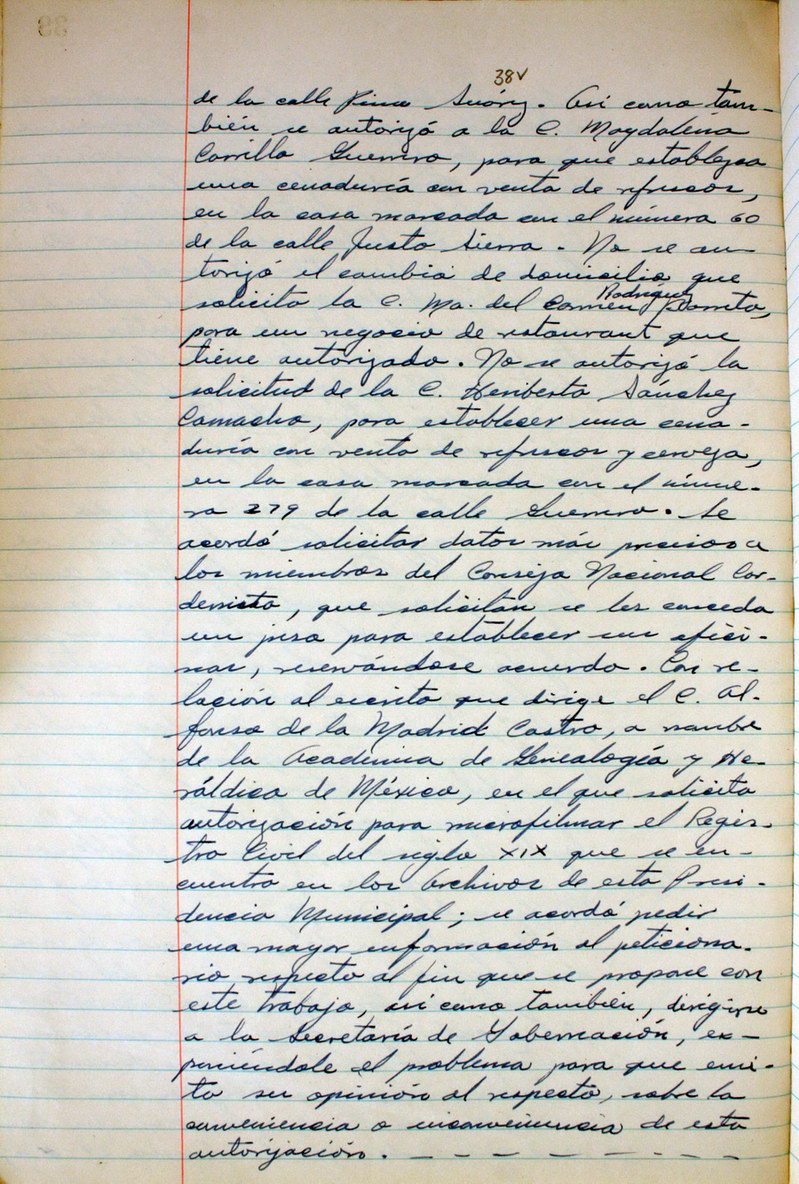 38v
de la calle Pino Suárez. Así como tam-
bién se autorizó a la C. Magdalena
Carrillo Guerrero, para que establezca
una cenaduría con venta de refrescos,
en la casa marcada con el número 60
de la calle Justo Sierra. No se au-
torizó el cambio de domicilio que
solicita la C. Ma. del Carmen Rodríguez
para un negocio de restaurant que
tiene autorizado. No se autorizó la
solicitud de la C. Heriberta Sánchez
Camacho, para establecer una cena-
duría con venta de refrescos y cerveza,
en la casa marcada con el núme-
ro 279 de la calle Guerrero. Se
acordó solicitar datos más precisos a
los miembros del Consejo Nacional Car-
denista, que solicitan se les conceda
un piso para establecer sus ofici-
nas, reservándose acuerdo. Con re-
lación al escrito que dirige el C. Al-
fonso de la Madrid Castro, a nombre
de la Academia de Genealogía y He-
ráldica de México, en el que solicita
autorización para microfilmar el Regis-
tro Civil del siglo XIX que se en-
cuentra en los Archivos de esta Presi-
dencia Municipal; se acordó pedir
una mayor información al peticiona-
rio respecto al fin que se propone con
este trabajo, así como también, dirigirse
a la Secretaría de Gobernación, ex-
poniéndole el problema para que emi-
ta su opinión al respecto, sobre la
conveniencia o inconveniencia de esta
autorización. - - - - - - -